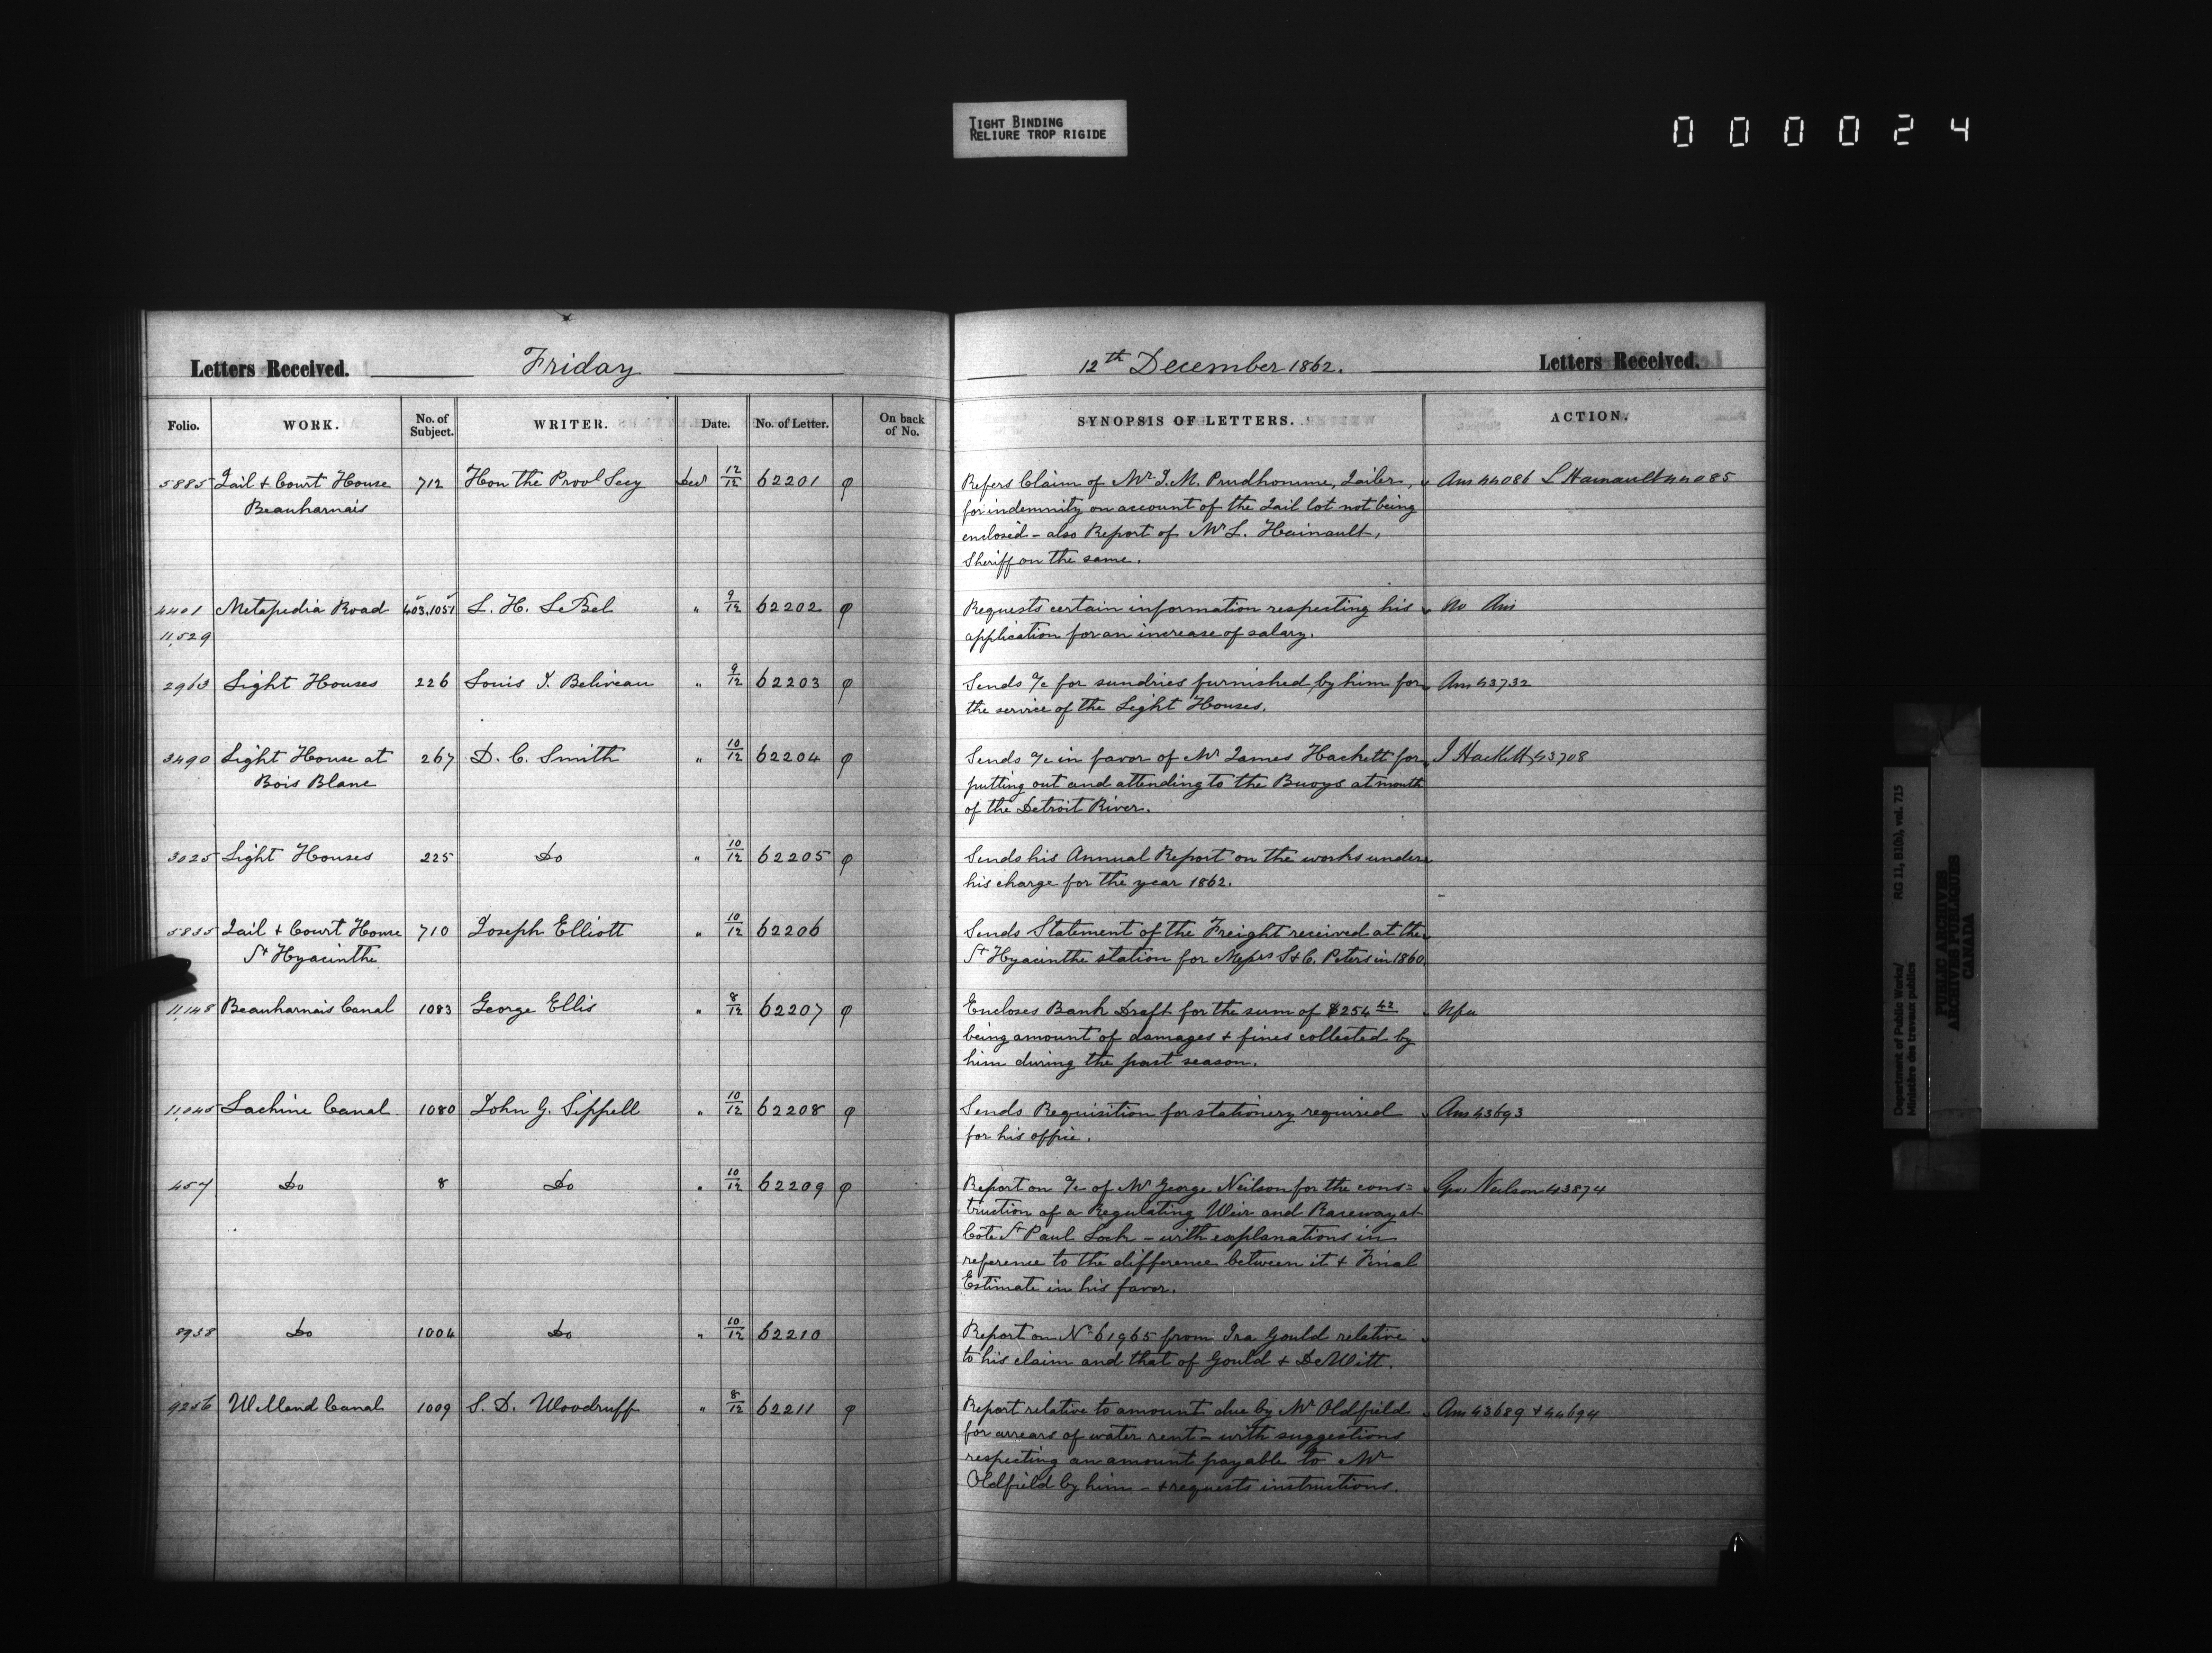 TIGHT BINDING
RELIURE TROP RIGIDE
000024
Letters Received. Friday
Folio. WORK. No. of Subject. WRITER. Date. No. of Letter. On back of No.
5885 Jail & Court House 712 Hon the Provl Secy Decr 12/12 62201 φ
Beauharnais
4401 Metapedia Road 403.1051 L. H. LeBel " 9/12 62202 φ
11,529
2963 Light Houses 226 Louis J. Beliveau " 9/12 62203 φ
3490 Light House at 267 D. C. Smith " 10/12 62204 φ
Bois Blanc
3025 Light Houses 225 Do " 10/12 62205 φ
5835 Jail & Court House 710 Joseph Elliott " 10/12 62206
St Hyacinthe
11,148 Beauharnais Canal 1083 George Ellis " 8/12 62207 φ
11,045 Lachine Canal 1080 John G. Sippell " 10/12 62208 φ
457 Do 8 Do " 10/12 62209 φ
8938 Do 1004 Do " 10/12 62210
9256 Welland Canal 1009 S. D. Woodruff " 8/12 62211 φ
12th December 1862. Letters Received.
SYNOPSIS OF LETTERS. ACTION.
Refers Claim of Mr J. M. Prudhomme, Jailer, Ans 44086 L Hainault 44085
for indemnity on account of the Jail lot not being
enclosed - also Report of Mr L. Hainault,
Sheriff on the same.
Requests certain information respecting his No Ans
application for an increase of salary.
Sends a/c for sundries furnished by him for Ans 43732
the service of the Light Houses.
Sends a/c in favor of Mr James Hackett for J Hackett 43708
putting out and attending to the Buoys at mouth
of the Detroit River.
Sends his Annual Report on the works under
his charge for the year 1862.
Sends Statement of the Freight received at the
St Hyacinthe station for Messrs S & C. Peters in 1860.
Encloses Bank Draft for the sum of $254 42 Nfa
being amount of damages & fines collected by
him during the past season.
Sends Requisition for stationery required Ans 43693
for his office.
Report on a/c of Mr George Neilson for the cons= Geo. Neilson 43874
truction of a Regulating Weir and Raceway at
Côte St Paul Lock - with explanations in
reference to the difference between it & Final
Estimate in his favor.
Report on No 61965 from Ira Gould relative
to his claim and that of Gould & DeWitt.
Report relative to amount due by Mr Oldfield Ans 43689 & 44694
for arrears of water rent - with suggestions
respecting an amount payable to Mr
Oldfield by him - & requests instructions.
Department of Public Works/ RG 11, B1(b), vol. 715
Ministère des travaux publics
PUBLIC ARCHIVES
ARCHIVES PUBLIQUES
CANADA